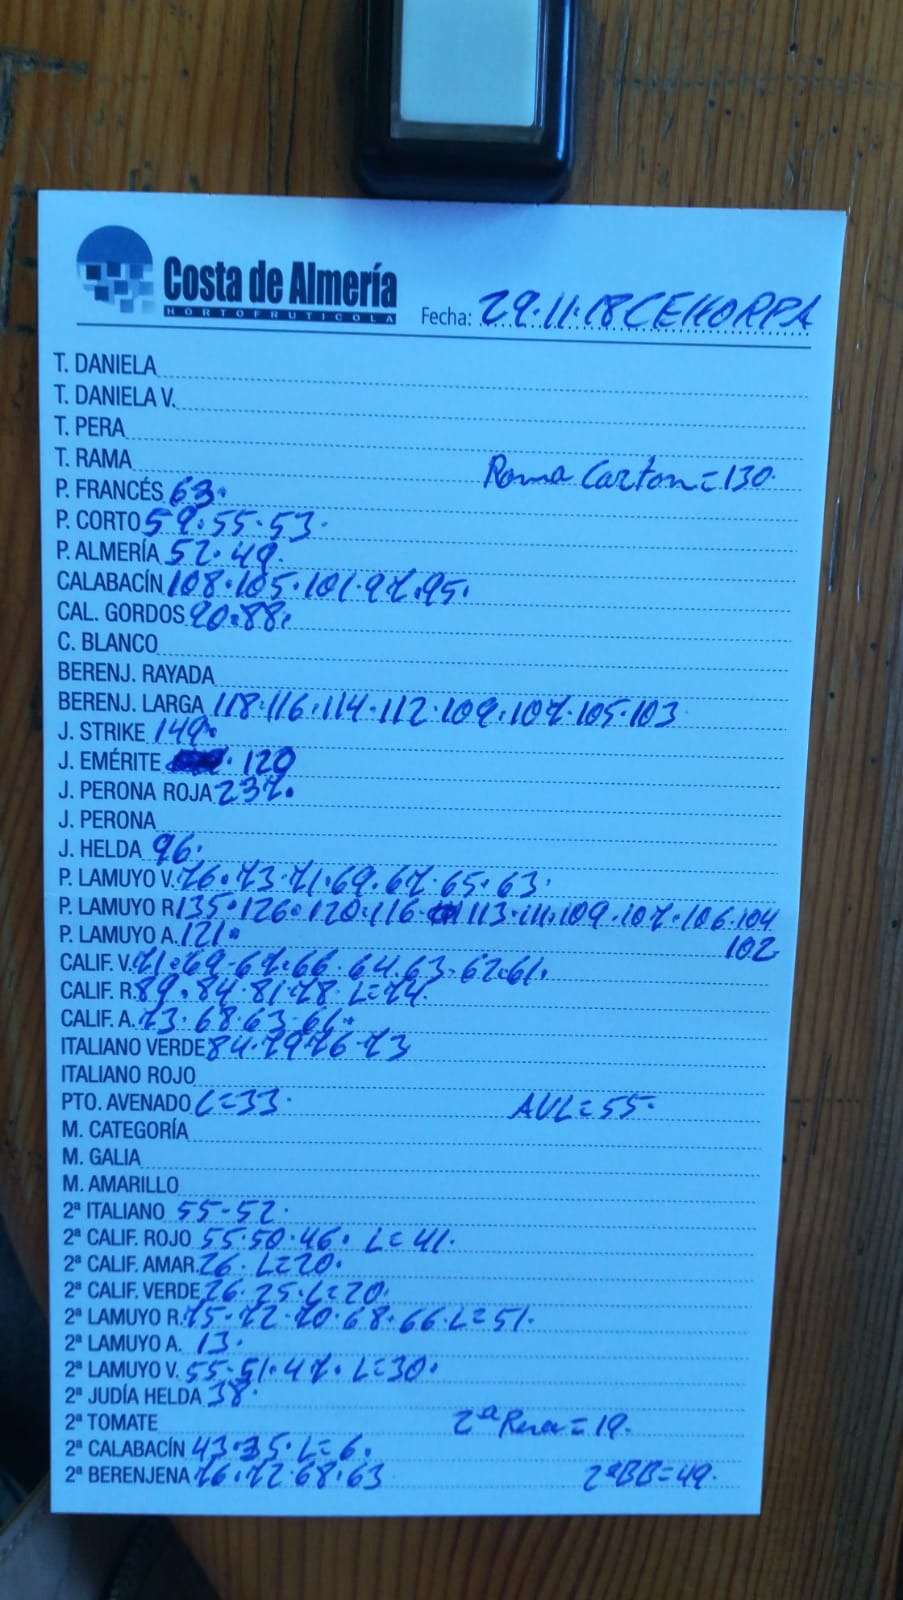 Costa de Almería
HORTOFRUTICOLA
Fecha: 29.11.18 CEHORPA
T. DANIELA
T. DANIELA V.
T. PERA
T. RAMA Rama Carton=130.
P. FRANCÉS 63.
P. CORTO 59.55.53.
P. ALMERÍA 52.49.
CALABACÍN 108.105.101.97.95.
CAL. GORDOS 90.88.
C. BLANCO
BERENJ. RAYADA
BERENJ. LARGA 118.116.114.112.109.107.105.103
J. STRIKE 149.
J. EMÉRITE . 120
J. PERONA ROJA 237.
J. PERONA
J. HELDA 96.
P. LAMUYO V. 76.73.71.69.67.65.63.
P. LAMUYO R. 135.126.120.116 113.111.109.107.106.104
P. LAMUYO A. 121. 102
CALIF. V. 71.69.67.66.64.63.62.61.
CALIF. R. 89.84.81.78 L=74.
CALIF. A. 73.68.63.61.
ITALIANO VERDE 84.79.76.73
ITALIANO ROJO
PTO. AVENADO L=33. AVL=55.
M. CATEGORÍA
M. GALIA
M. AMARILLO
2ª ITALIANO 55-52.
2ª CALIF. ROJO 55.50.46. L=41.
2ª CALIF. AMAR. 26. L=20.
2ª CALIF. VERDE 26.25.L=20.
2ª LAMUYO R. 75.72.70.68.66.L=51.
2ª LAMUYO A. 13.
2ª LAMUYO V. 55-51.47. L=30.
2ª JUDÍA HELDA 38.
2ª TOMATE 2ª Pera=19.
2ª CALABACÍN 43.35.L=6.
2ª BERENJENA 76.72.68.63 2ªBB=49.